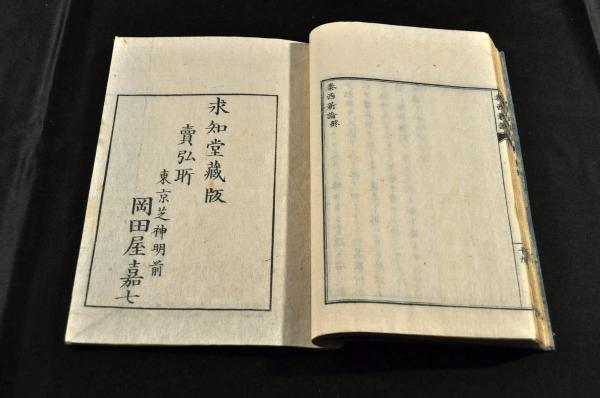 泰西新論終
求知堂藏版
賣弘所
東京芝神明前
岡田屋嘉七